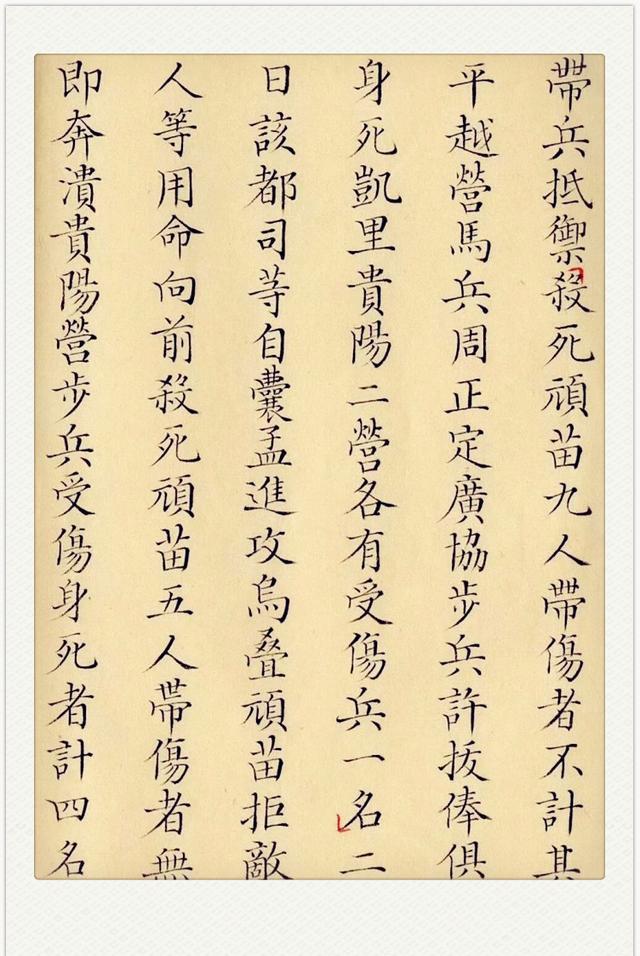 帶兵抵禦殺死頑苗九人帶傷者不計其
平越營馬兵周正定廣協步兵許拔俸俱
身死凱里貴陽二營各有受傷兵一名二
日該都司等自囊孟進攻烏疊頑苗拒敵
人等用命向前殺死頑苗五人帶傷者無
即奔潰貴陽營步兵受傷身死者計四名